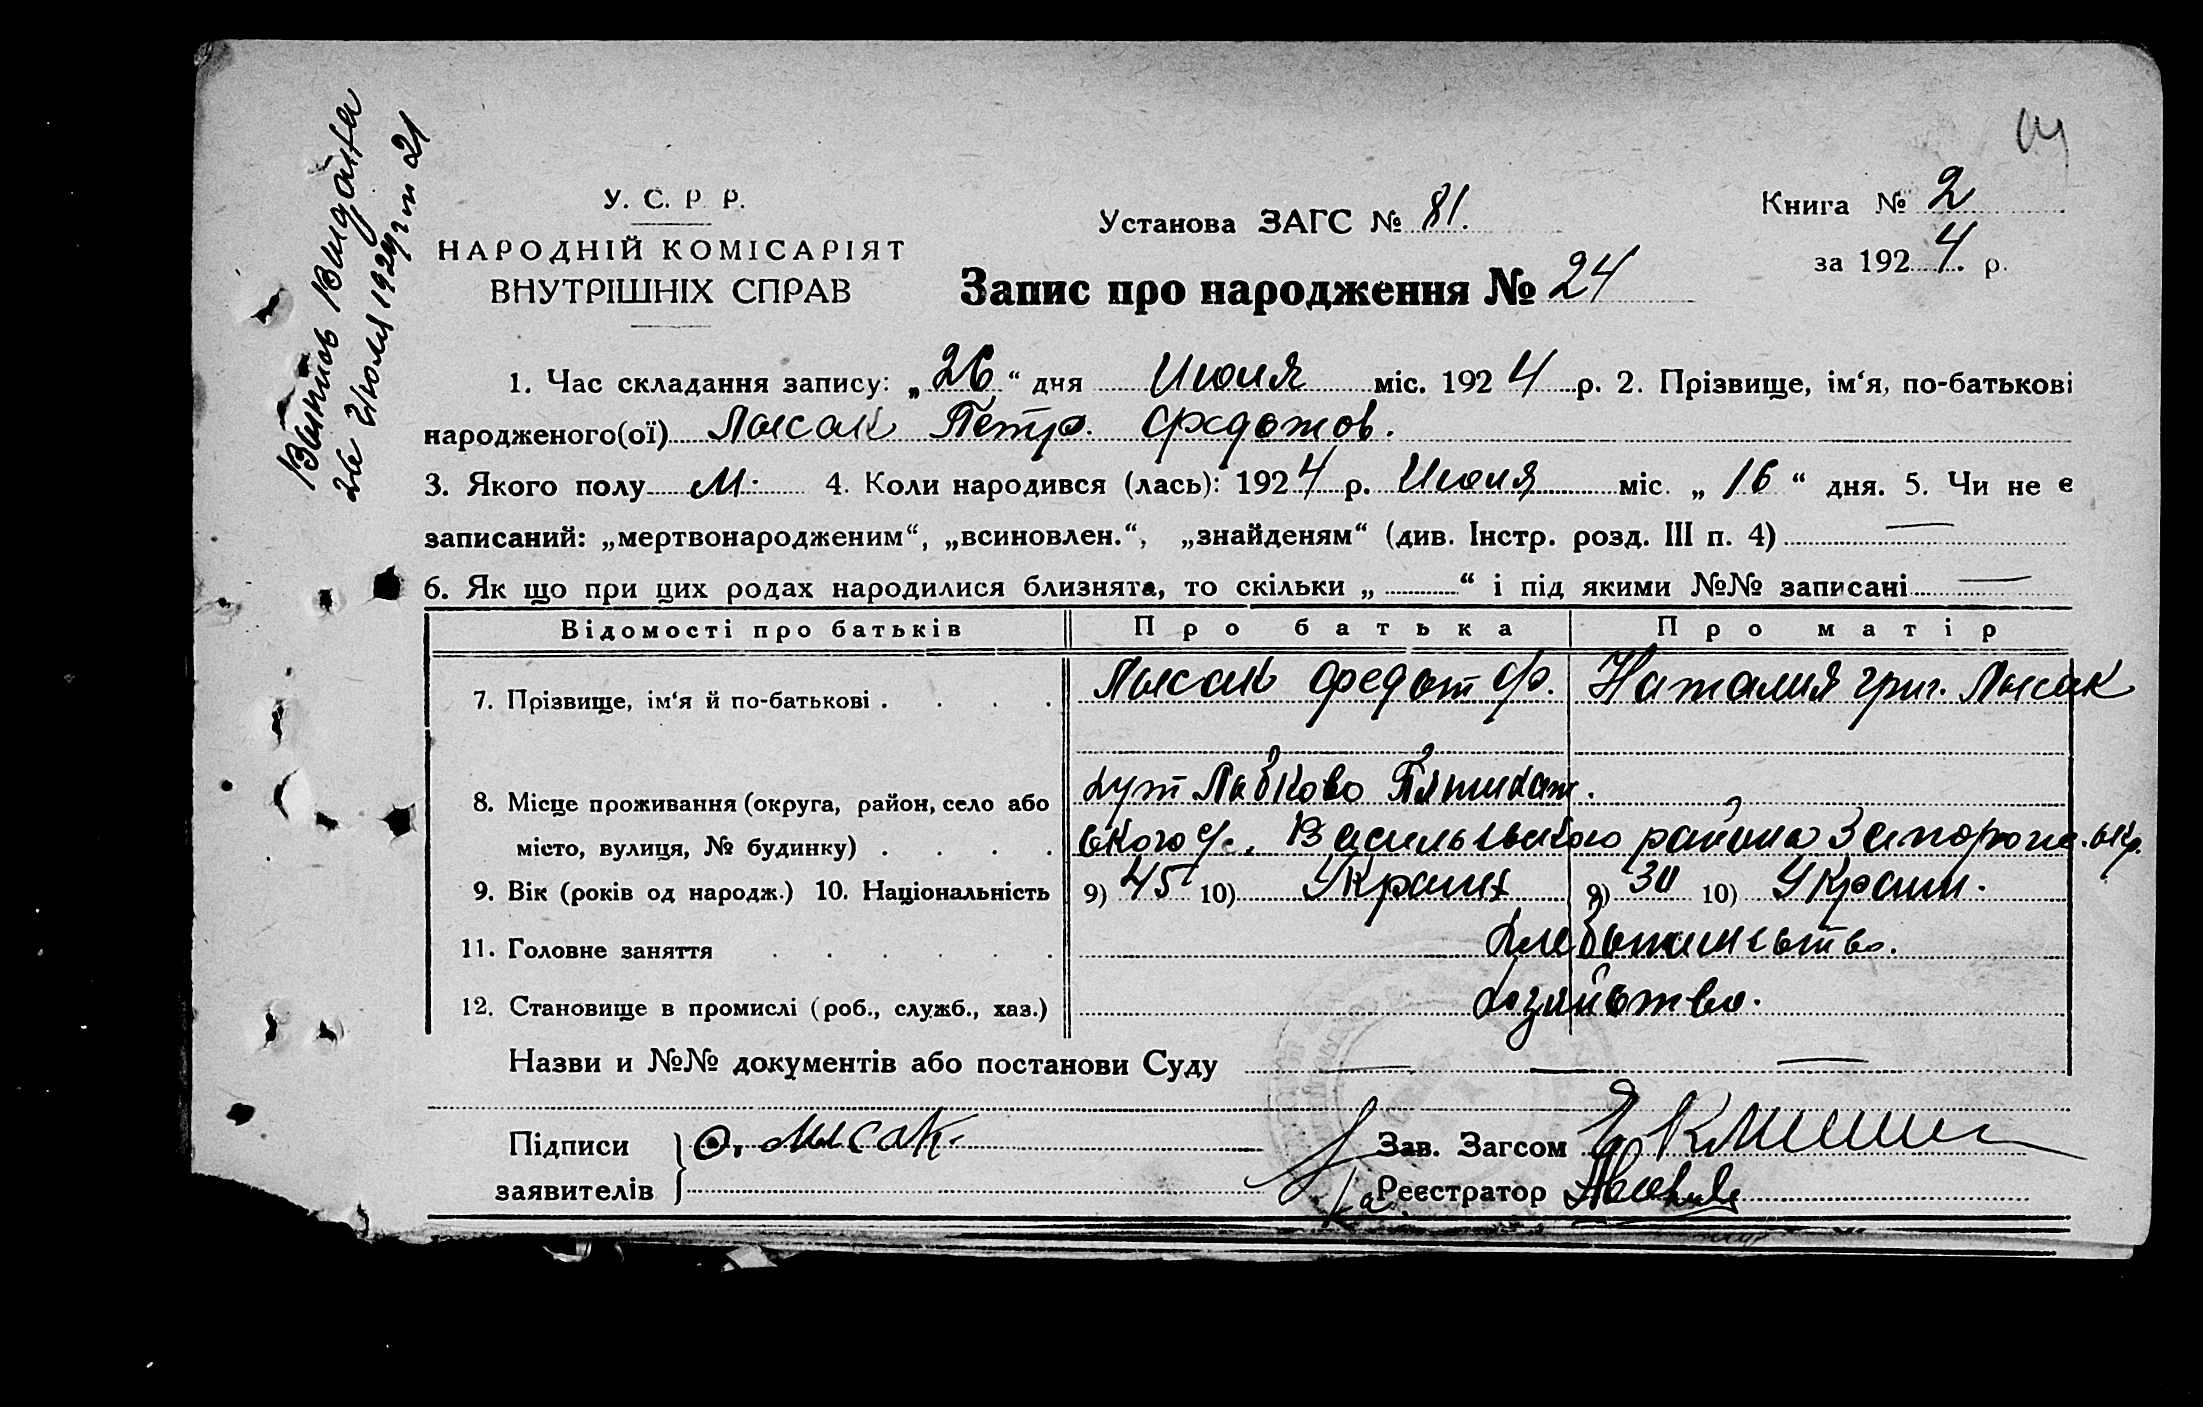 Выпись видана
26 Июля 1924 г. № 21
У. С. Р. Р.
НАРОДНІЙ КОМІСАРІЯТ
ВНУТРІШНІХ СПРАВ
Установа ЗАГС № 81.
Книга № 2
за 1924 р.
Запис про народження № 24
1. Час складання запису: „26“ дня Июля міс. 1924 р. 2. Прізвище, ім‘я, по-батькові
народженого(ої) Лысак Петро. Федотов.
3. Якого полу М. 4. Коли народився (лась): 1924 р. Июля міс. „16“ дня. 5. Чи не є
записаний: „мертвонародженим“, „всиновлен.“, „знайденям“ (див. Інстр. розд. III п. 4) —
6. Як що при цих родах народилися близнята, то скільки „ “ і під якими №№ записані —
Відомості про батьків Про батька Про матір
7. Прізвище, ім‘я й по-батькові . . . . Лысак Федот Ф. Наталия Григ. Лысак
8. Місце проживання (округа, район, село або хут Лабково
місто, вулиця, № будинку) . . . . ского Васильевского района Запорож. окр.
9. Вік (років од народж.) 10. Національність 9) 45 10) Украин 9) 30 10) Украин.
11. Головне заняття . . . . . . Хлебопашество.
12. Становище в промислі (роб., служб., хаз.) Хозяйство.
Назви и №№ документів або постанови Суду — — —
Підписи Ф. Лысак Зав. Загсом
заявителів Реєстратор